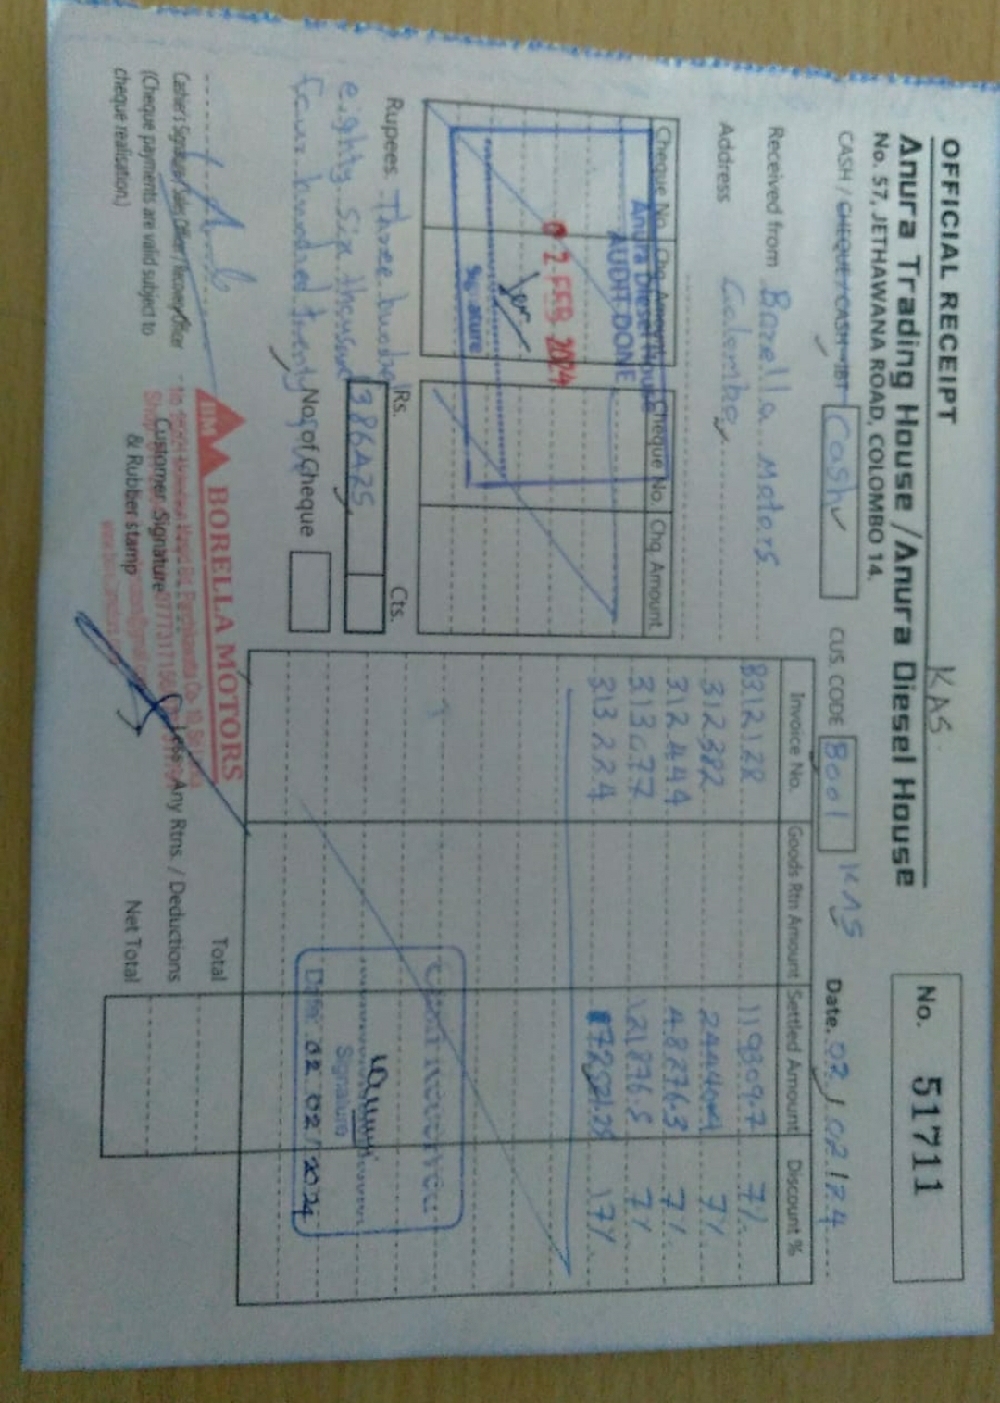 KAS
OFFICIAL RECEIPT
Anura Trading House / Anura Diesel House
No. 57, JETHAWANA ROAD, COLOMBO 14.
No. 51711
CASH / CHEQUE / CASH-IBT Cash
CUS. CODE Bool KAS
Date. 02/02/24
Received from Borella Motors
Address Colombo
Cheque No. Chq Amount Cheque No. Chq. Amount
Anura Diesel House
AUDIT DONE
02 FEB 2024
Signature
Rs. Cts.
Rupees. Three hundred
eighty six thousand 386425
four hundred twenty
No. of Cheque
Invoice No. Goods Rtn Amount Settled Amount Discount %
8312128 119309.7 7%
312382 7%
312444 48276.3 7%
313077 121876.5 7%
313224 17%
Signature
Date: 02/02/2024
Total
Less Any Rtns. / Deductions
Net Total
BM BORELLA MOTORS
Customer Signature
& Rubber stamp
Cashier's Signature / Sales Officer / Recovery Officer
(Cheque payments are valid subject to
cheque realisation.)